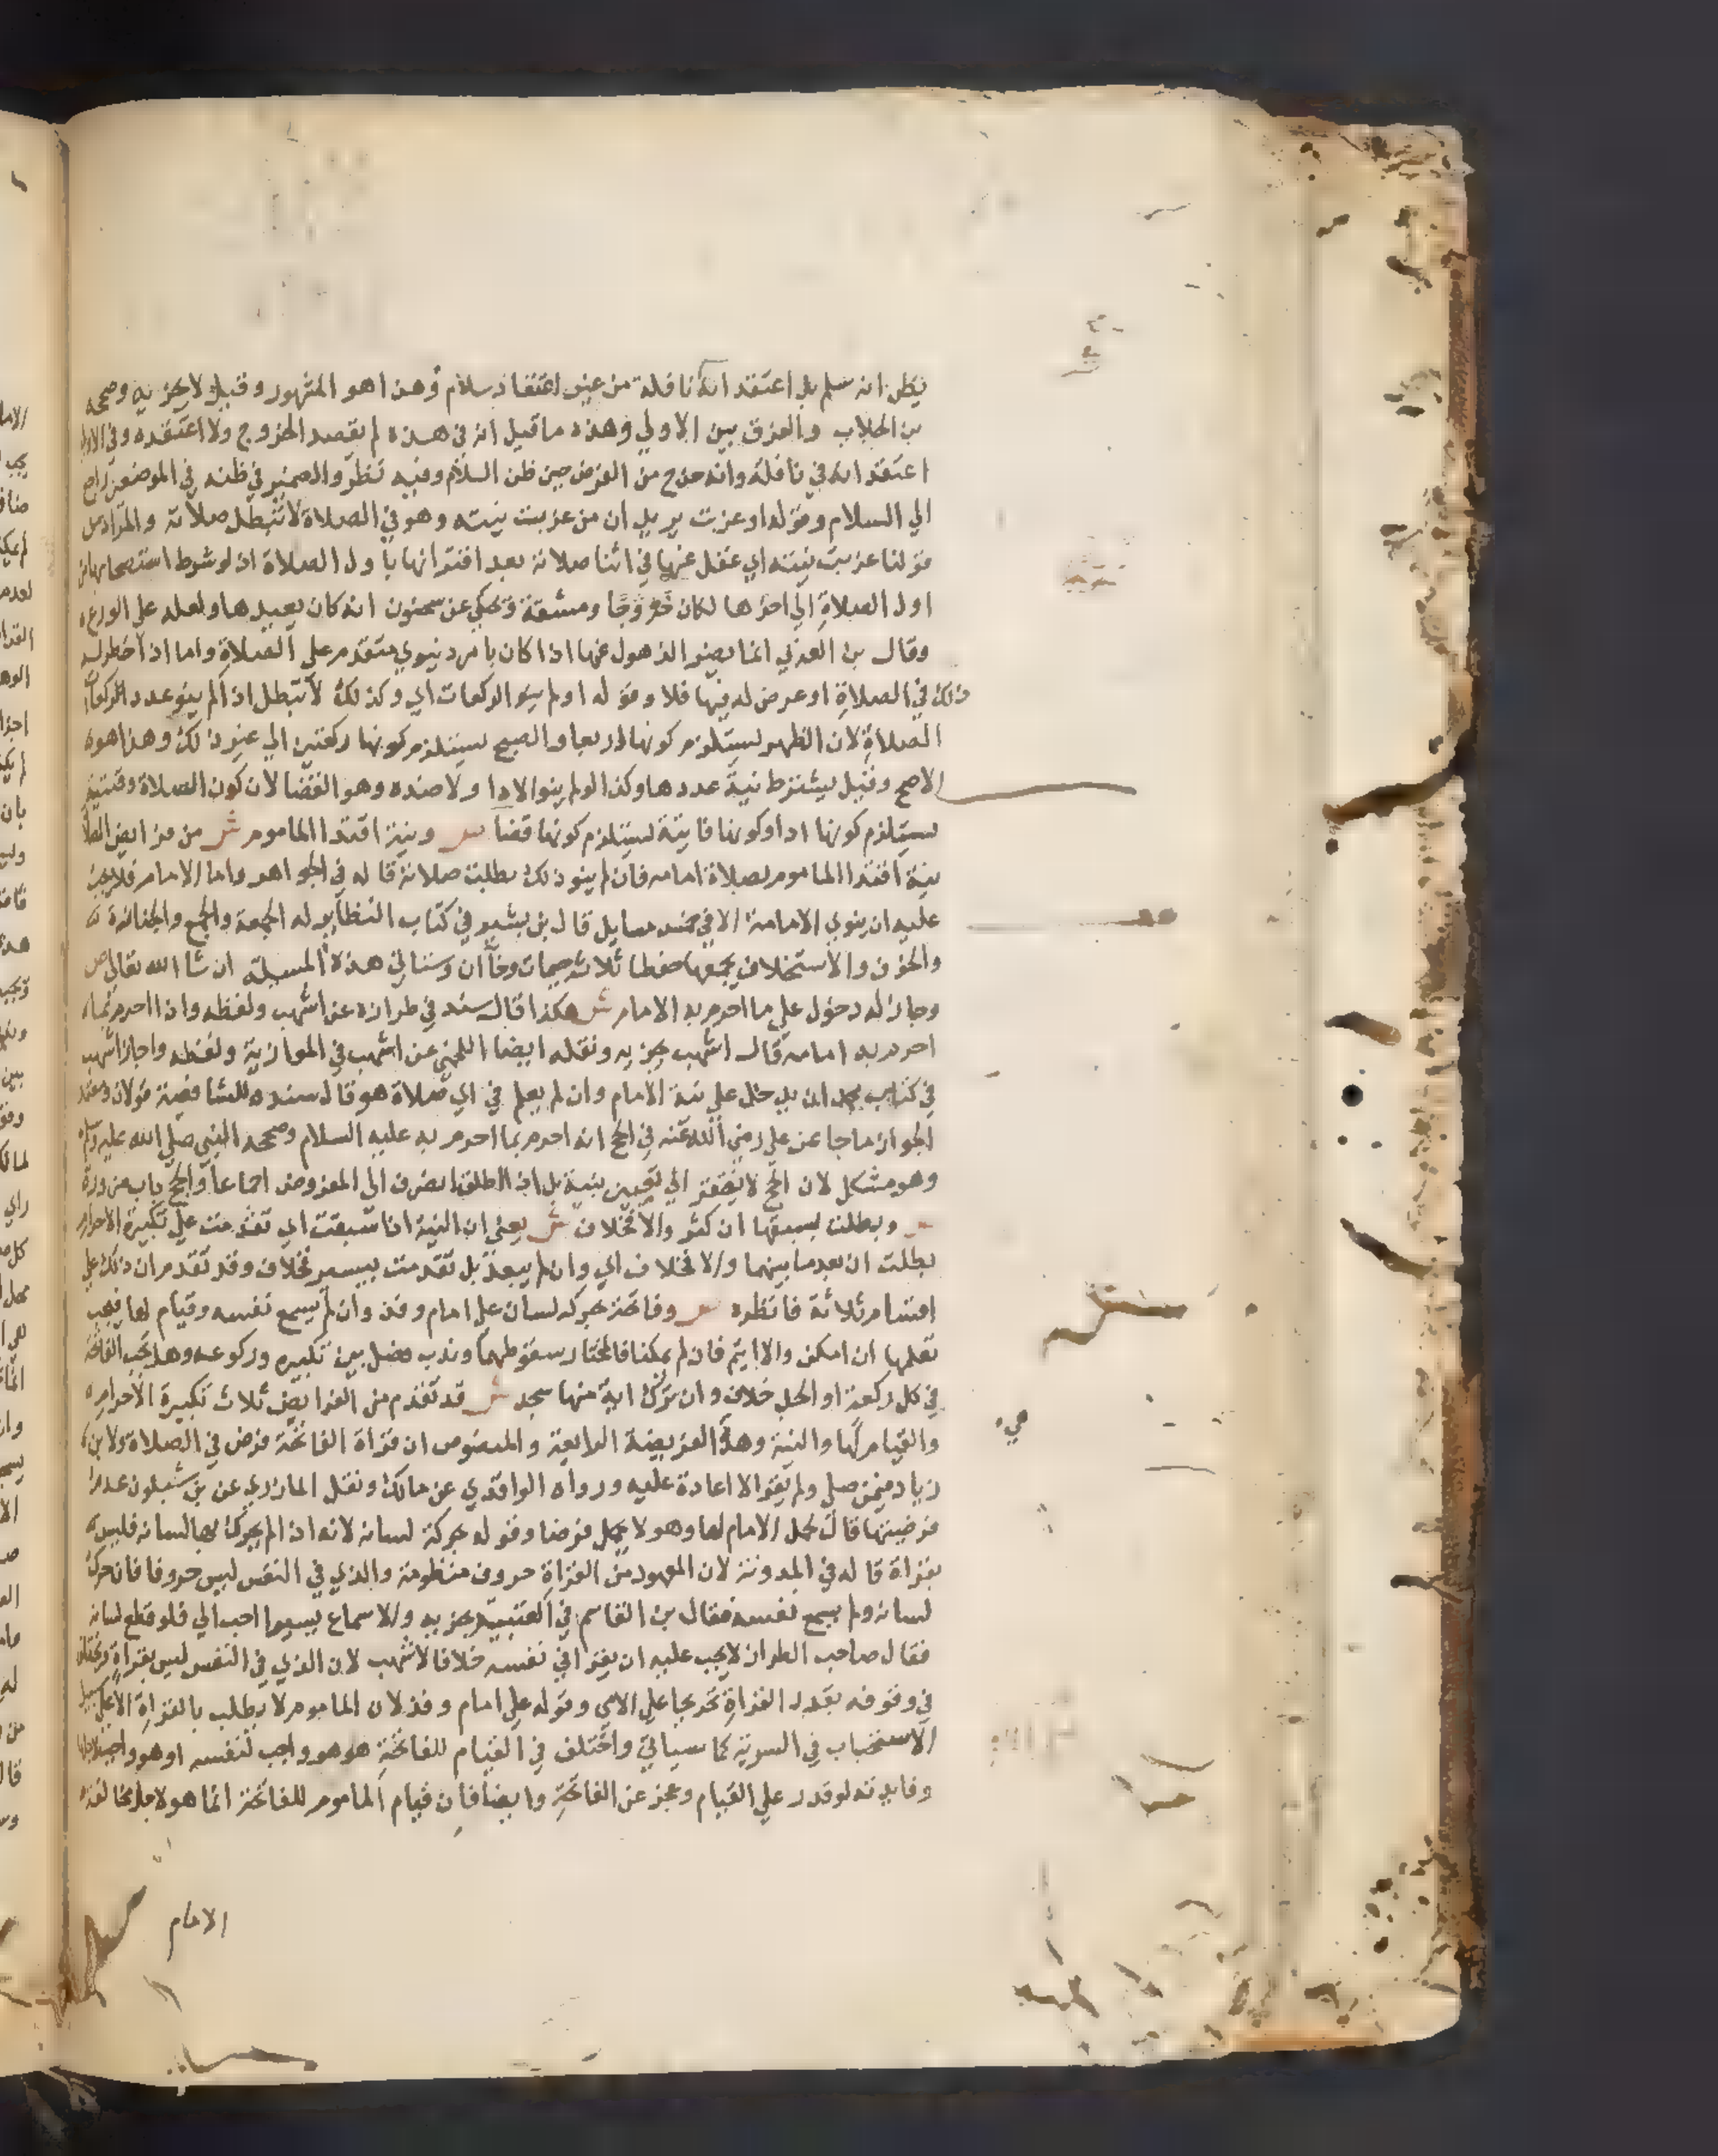 يظن انه سلم بل اعتقد انه نافلة من غير اعتقاد سلام وهذا هو المشهور وقيل لا يجزيه وصححه
بن الجلاب والفرق بين الاولي وهذه ما قيل انه في هذه لم يقصد الخروج ولا اعتقده وفي الاولي
اعتقد انه في نافلة وانه خرج من الفرض حين ظن السلام وفيه نظر والضمير في ظنه في الموضعين راجع
الي السلام وقوله او عزبت يريد ان من عزبت نيته وهو في الصلاة لا تبطل صلاته والمراد من
قولنا عزبت نيته اي غفل عنها في اثنا صلاته بعد اقترانها باول الصلاة اذ لو شرط استصحابها من
اول الصلاة الي اخرها لكان حرجا ومشقة وحكي عن سحنون انه كان يعيدها ولعله علي الورع
وقال بن العربي انما يضر الذهول عنها اذا كان بامر دنيوي متقدم علي الصلاة واما اذا خطر له
ذلك في الصلاة او عرض له فيها فلا وقوله او لم ينو الركعات اي وكذلك لا تبطل اذا لم ينو عدد الركعات
الصلاة لان الظهر يستلزم كونها اربعا والصبح يستلزم كونها ركعتين الي غير ذلك وهذا هو
الاصح وقيل يشترط نية عددها وكذا لو لم ينو الادا ولا ضده وهو القضا لان كون الصلاة وقتية
يستلزم كونها ادا وكونها فايتة يستلزم كونها قضا ص ونية اقتدا الماموم ش من فرايض الصلاة
نية اقتدا الماموم بصلاة امامه فان لم ينو ذلك بطلت صلاته قاله في الجواهر واما الامام فلا يجب
عليه ان ينوي الامامة الا في خمس مسايل قال بن بشير في كتاب النظاير له الجمعة والجمع والجنازة
والخوف والاستخلاف يجمعها حفظا ثلاث جيمات وخاان وسناتي هذه المسيلة ان شا الله تعالي ص
وجاز له دخول علي ما احرم به الامام ش هكذا قال سند في طرازه عن اشهب ولفظه وان احرم بما
احرم به امامه قال اشهب يجزيه ونقله ايضا اللخمي عن اشهب في الموازية ولفظه واجاز اشهب
في كتاب محمد ان يدخل علي نية الامام وان لم يعلم في اي صلاة هو قال سند للشافعية قولان وعمدة
الجواز ما جا عن علي رضي الله عنه في الحج انه احرم بما احرم به عليه السلام وصححه النبي صلي الله عليه وسلم
وهو مشكل لان الحج لا يفتقر الي تعيين بنية بل اذا اطلق انصرف الي المفروض اجماعا والحج باب ضرورة
ص وبطلت بسبقها ان كثر والا فخلاف ش يعني ان النية اذا سبقت اي تقدمت علي تكبيرة الاحرام
بطلت ان بعد ما بينهما والا فخلاف اي وان لم يبعد بل تقدمت بيسير فخلاف وقد تقدم ان ذلك علي
اقسام ثلاثة فانظره ص وفاتحة بحركة لسان علي امام وفذ وان لم يسمع نفسه وقيام لها فيجب
تعلمها ان امكن والا ايتم فان لم يمكنا فالمختار سقوطهما وندب فصل بين تكبيره وركوعه وهل تجب الفاتحة
في كل ركعة او الجل خلاف وان ترك اية منها سجد ش قد تقدم من الفرايض ثلاث تكبيرة الاحرام
والقيام لها والنية وهذه الفريضة الرابعة والمنصوص ان قراة الفاتحة فرض في الصلاة ولابن
زياد فيمن صلي ولم يقرا لا اعادة عليه ورواه الواقدي عن مالك ونقل المازري عن بن شبلون عدم
فرضيتها قال لحمل الامام لها وهو لا يحمل فرضا وقوله بحركة لسان لانه اذا لم يحرك بها لسانه فليس
بقراة قاله في المدونة لان المعهود من القراة حروف منظومة والذي في النفس ليس حروفا فان حرك
لسانه ولم يسمع نفسه فقال بن القاسم في العتبية يجزيه والاسماع يسيرا احب الي فلو قطع لسانه
فقال صاحب الطراز لا يجب عليه ان يقرا في نفسه خلافا لاشهب لان الذي في النفس ليس بقراة
في وقوفه بقدر القراة تخريجا علي الامي وقوله علي امام وفذ لان الماموم لا يطلب بالقراة الا علي سبيل
الاستحباب في السرية كما سياتي واختلف في القيام للفاتحة هل هو واجب لنفسه او هو واجب لاجلها
وفايدته لو قدر علي القيام وعجز عن الفاتحة وايضا فان قيام الماموم للفاتحة انما هو لاجل مخالفة
الامام